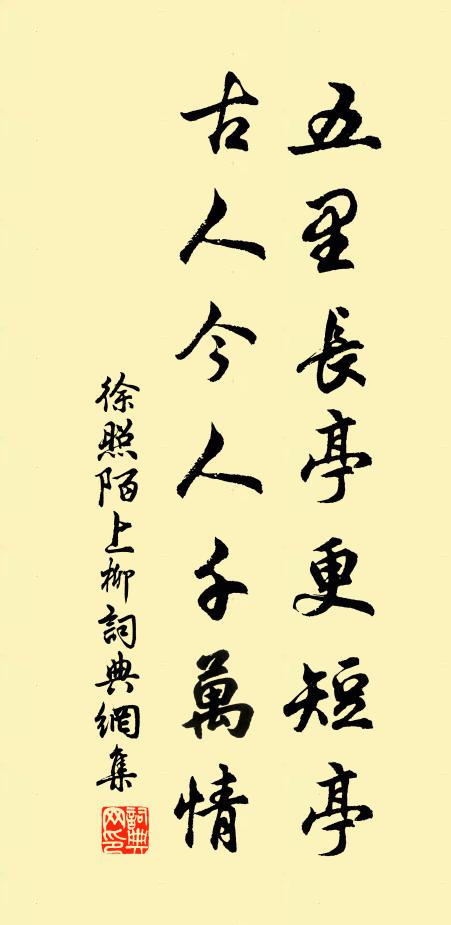 五里長亭更短亭
古人今人千萬情
徐照陌上柳詞典網集
詞典網印